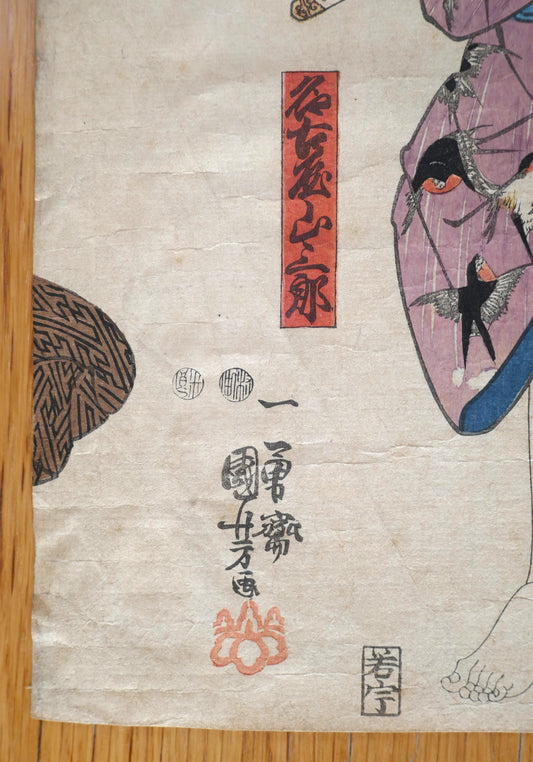 名古屋山三郎
一勇斎
国芳画
若宇